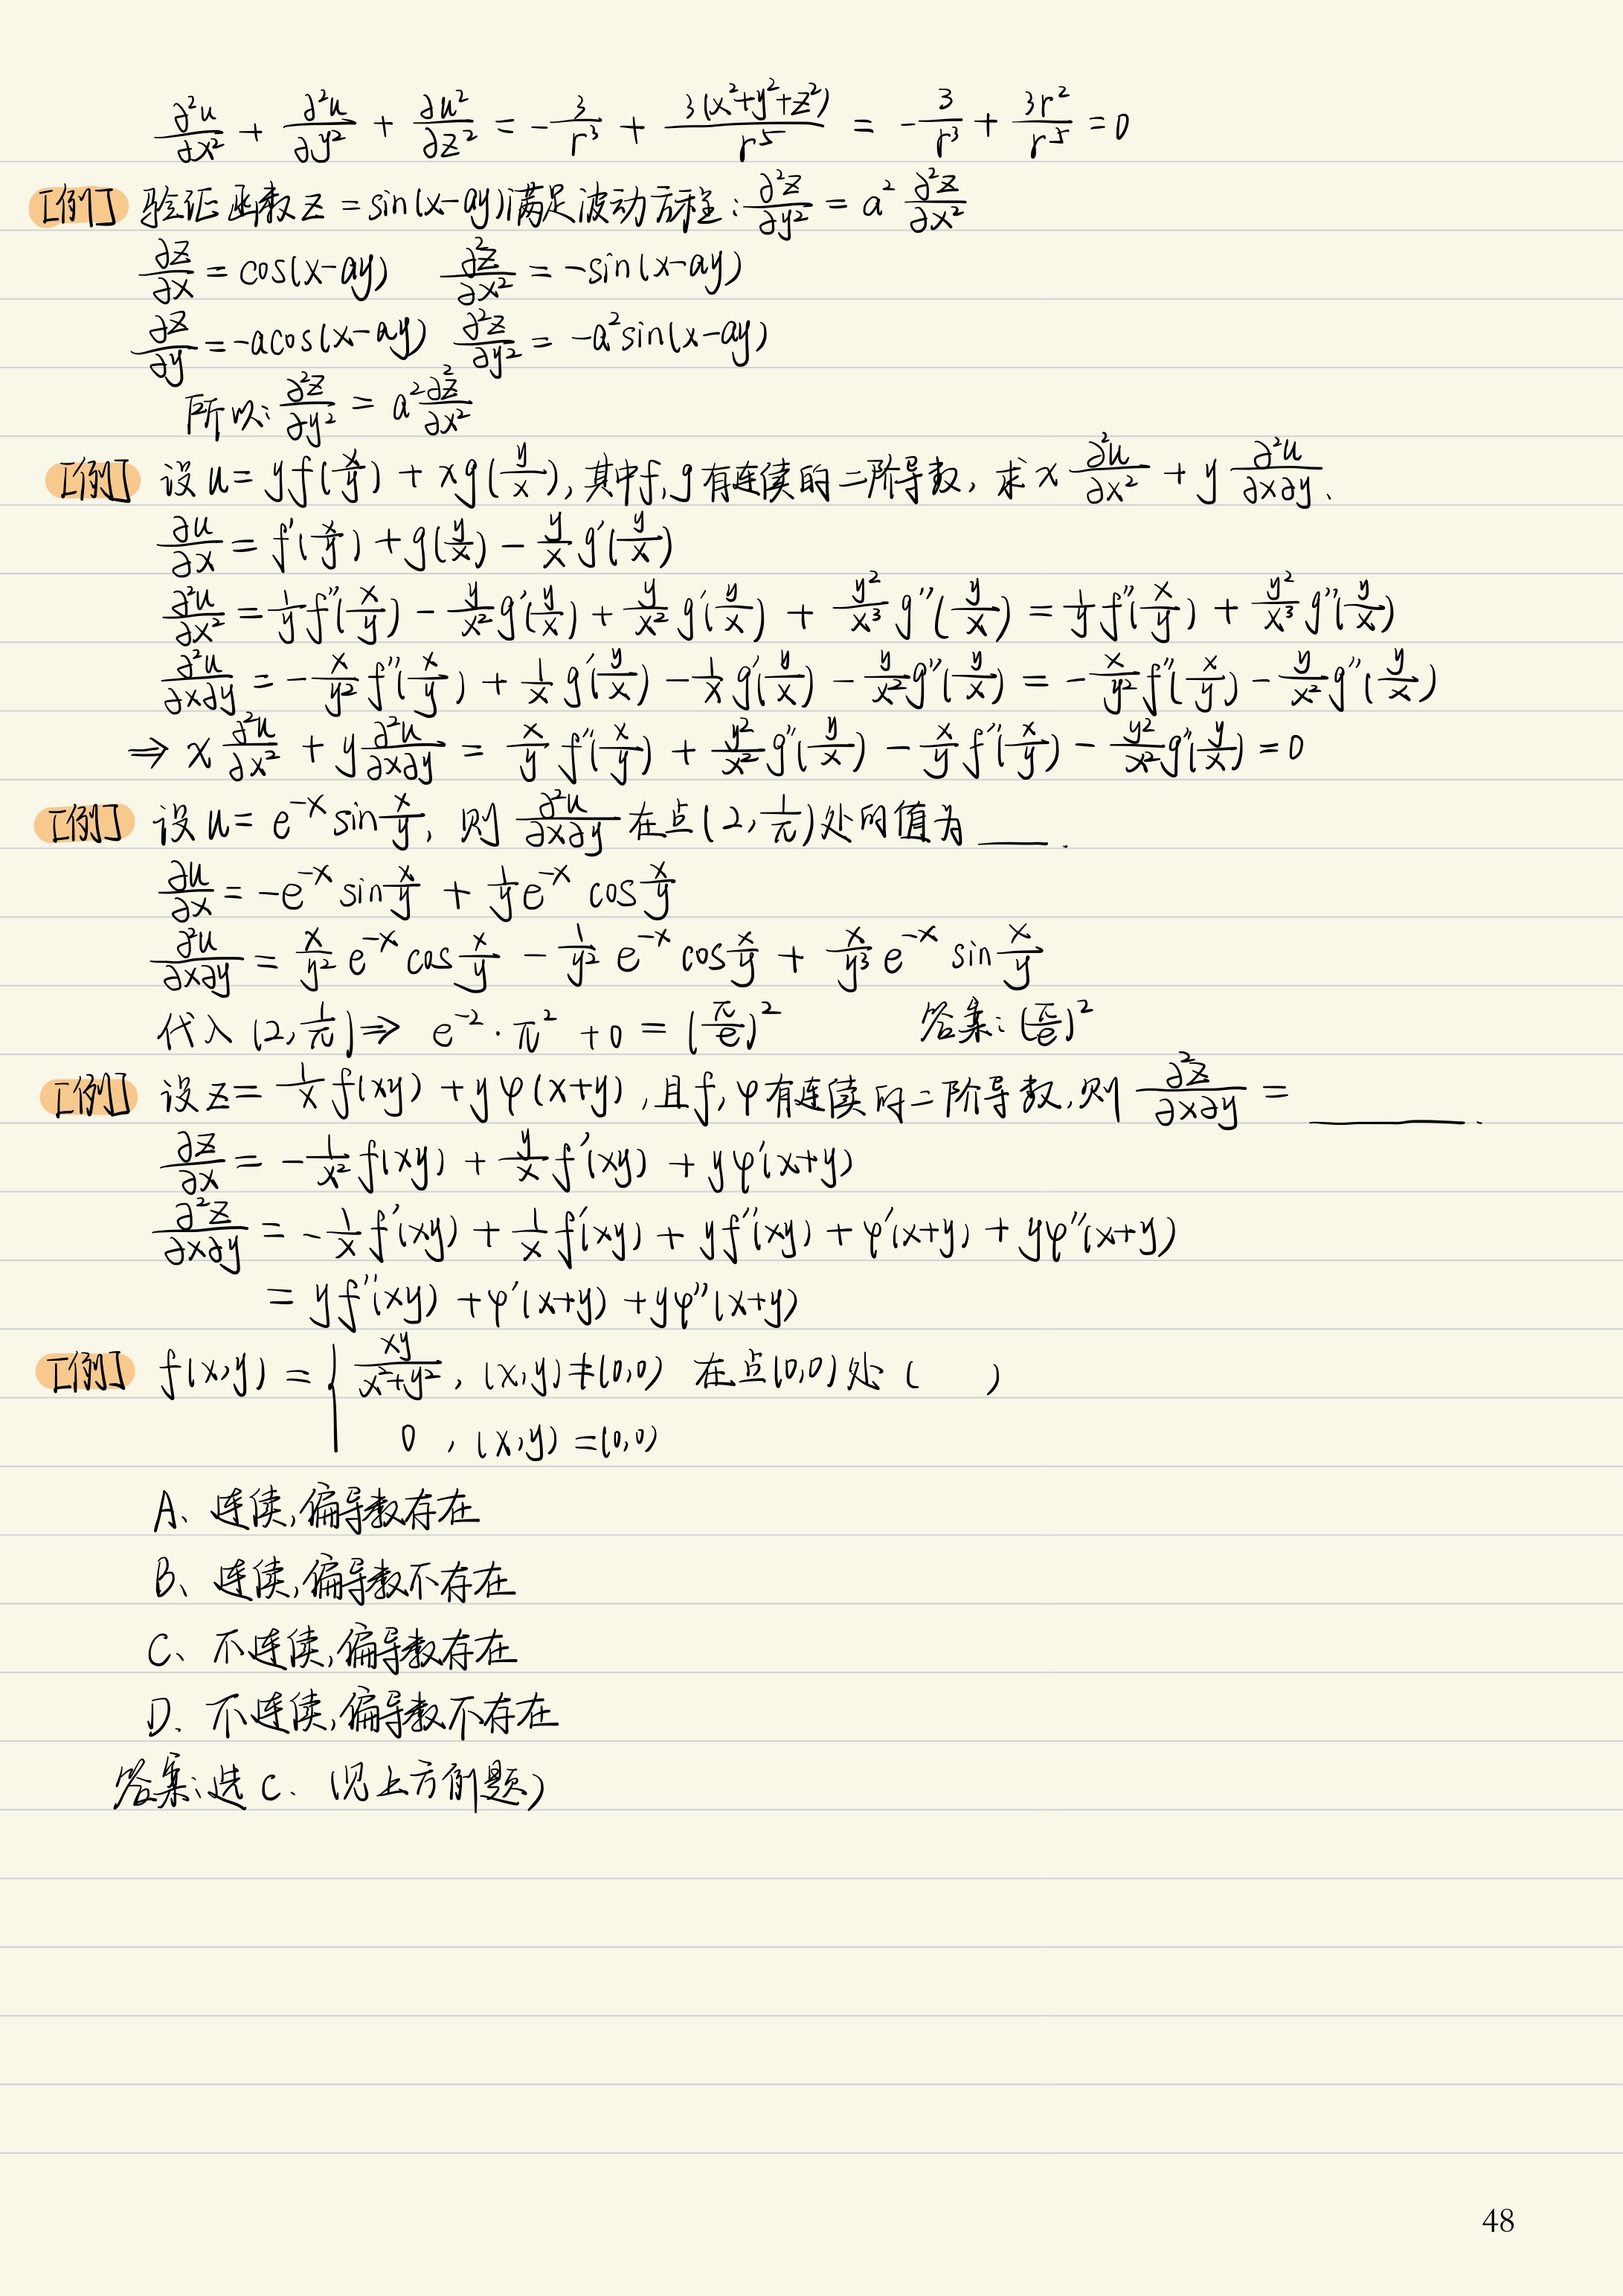 ∂²u/∂x² + ∂²u/∂y² + ∂u²/∂z² = -3/r³ + 3(x²+y²+z²)/r⁵ = -3/r³ + 3r²/r⁵ = 0
[例] 验证函数 z = sin(x-ay)满足波动方程: ∂²z/∂y² = a² ∂²z/∂x²
∂z/∂x = cos(x-ay) ∂²z/∂x² = -sin(x-ay)
∂z/∂y = -acos(x-ay) ∂²z/∂y² = -a²sin(x-ay)
所以: ∂²z/∂y² = a² ∂²z/∂x²
[例] 设 u = yf(x/y) + xg(y/x), 其中f, g有连续的二阶导数, 求 x ∂²u/∂x² + y ∂²u/∂x∂y.
∂u/∂x = f'(x/y) + g(y/x) - y/x g'(y/x)
∂²u/∂x² = 1/y f''(x/y) - y/x² g'(y/x) + y/x² g'(y/x) + y²/x³ g''(y/x) = 1/y f''(x/y) + y²/x³ g''(y/x)
∂²u/∂x∂y = -x/y² f''(x/y) + 1/x g'(y/x) - 1/x g'(y/x) - y/x² g''(y/x) = -x/y² f''(x/y) - y/x² g''(y/x)
⇒ x ∂²u/∂x² + y ∂²u/∂x∂y = x/y f''(x/y) + y²/x² g''(y/x) - x/y f''(x/y) - y²/x² g''(y/x) = 0
[例] 设 u = e^{-x} sin x/y, 则 ∂²u/∂x∂y 在点(2, 1/π)处的值为 ____.
∂u/∂x = -e^{-x} sin x/y + 1/y e^{-x} cos x/y
∂²u/∂x∂y = x/y² e^{-x} cos x/y - 1/y² e^{-x} cos x/y + x/y³ e^{-x} sin x/y
代入 (2, 1/π) ⇒ e^{-2}·π² + 0 = (π/e)² 答案: (π/e)²
[例] 设 z = 1/x f(xy) + yφ(x+y), 且f, φ有连续的二阶导数, 则 ∂²z/∂x∂y = ________.
∂z/∂x = -1/x² f(xy) + y/x f'(xy) + yφ'(x+y)
∂²z/∂x∂y = -1/x f'(xy) + 1/x f'(xy) + yf''(xy) + φ'(x+y) + yφ''(x+y)
= yf''(xy) + φ'(x+y) + yφ''(x+y)
[例] f(x,y) = { xy/(x²+y²), (x,y)≠(0,0) 在点(0,0)处 ( )
0 , (x,y) = (0,0)
A、连续,偏导数存在
B、连续,偏导数不存在
C、不连续,偏导数存在
D、不连续,偏导数不存在
答案:选 C. (见上方例题)
48